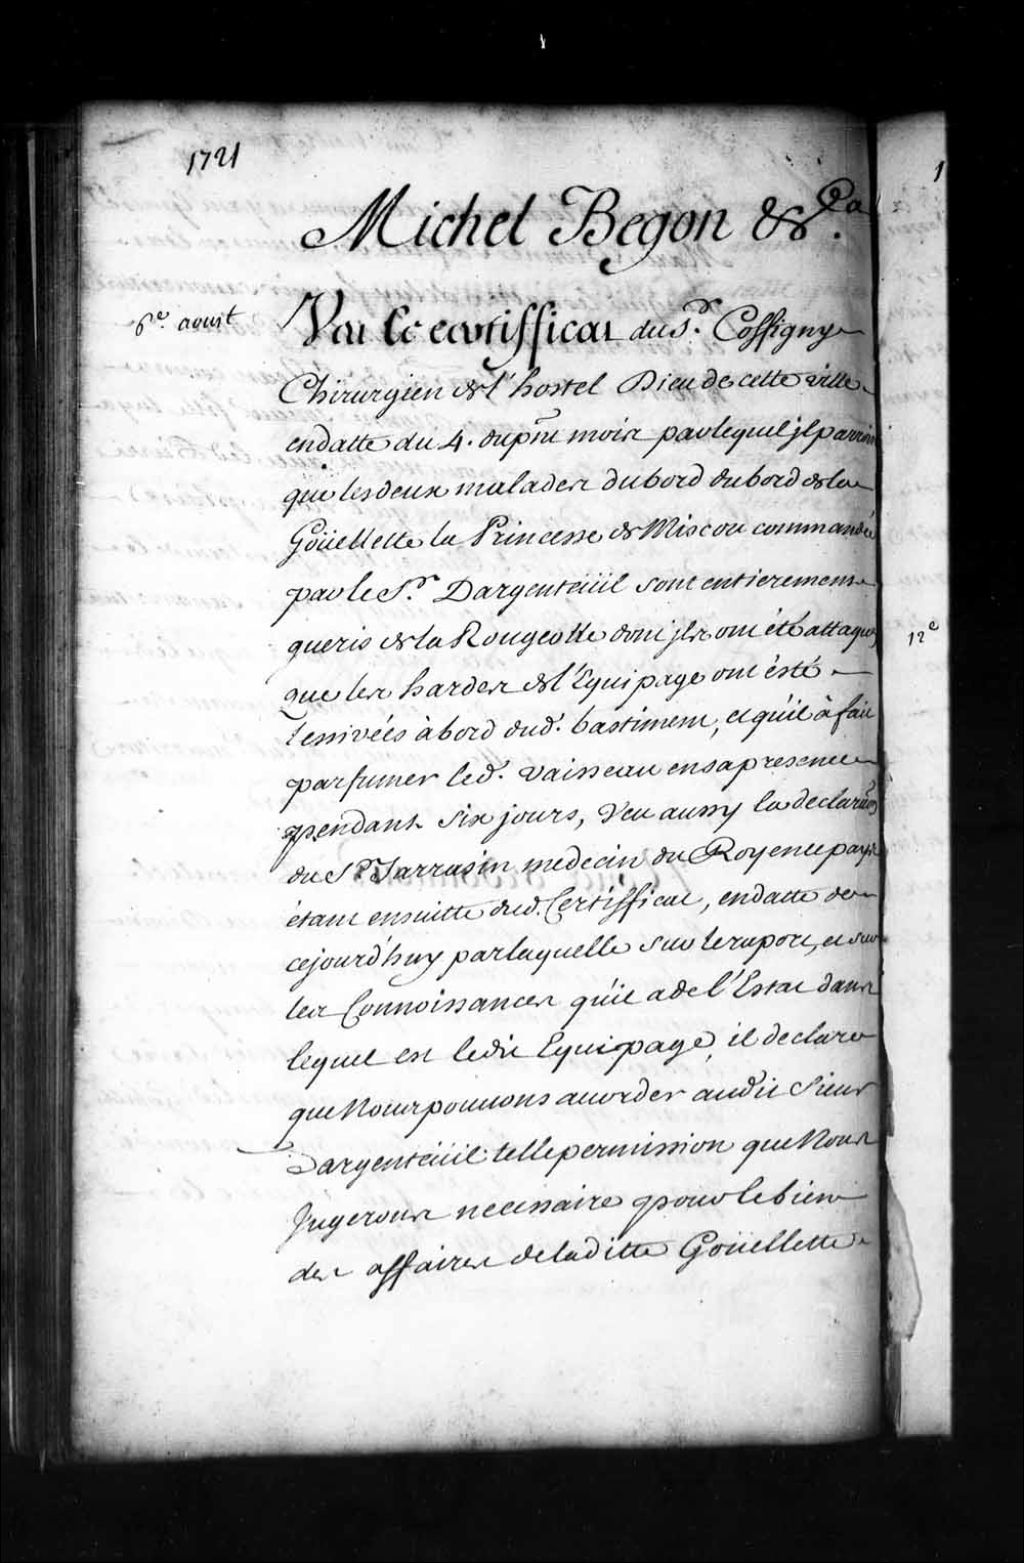 1721
Michel Begon &c.a
6e. aoust
Veu Le certifficat du Sr. Coffigny
Chirurgien de l'hostel Dieu de cette ville
en datte du 4. du pnt mois par lequel jl
que les deux malades du bord du bord de la
Goüellette la Princesse de Miscou commandée
par le Sr. Dargenteüil sont entierement
gueris de la Rougeolle dont jls ont été attaqués
que les hardes de l'Equipage ont ésté
Lessivées à bord dud. bastiment, et qu'il à fait
parfumer led. vaisseau en sa presence
pendant six jours, Veu aussy la declaration
du Sr. Sarrasin medecin du Roy en ce pays
étant ensuitte dud. Certifficat, en datte de
cejourd'huy par laquelle sur le raport, et sur
les Connoissances qu'il a de l'Estat dans
lequel est ledit Equipage, il declare
que Nous pouvons accorder audit Sieur
Dargenteüil telle permission que Nous
Jugerons necessaire pour le bien
des affaires de laditte Goüellette
12e